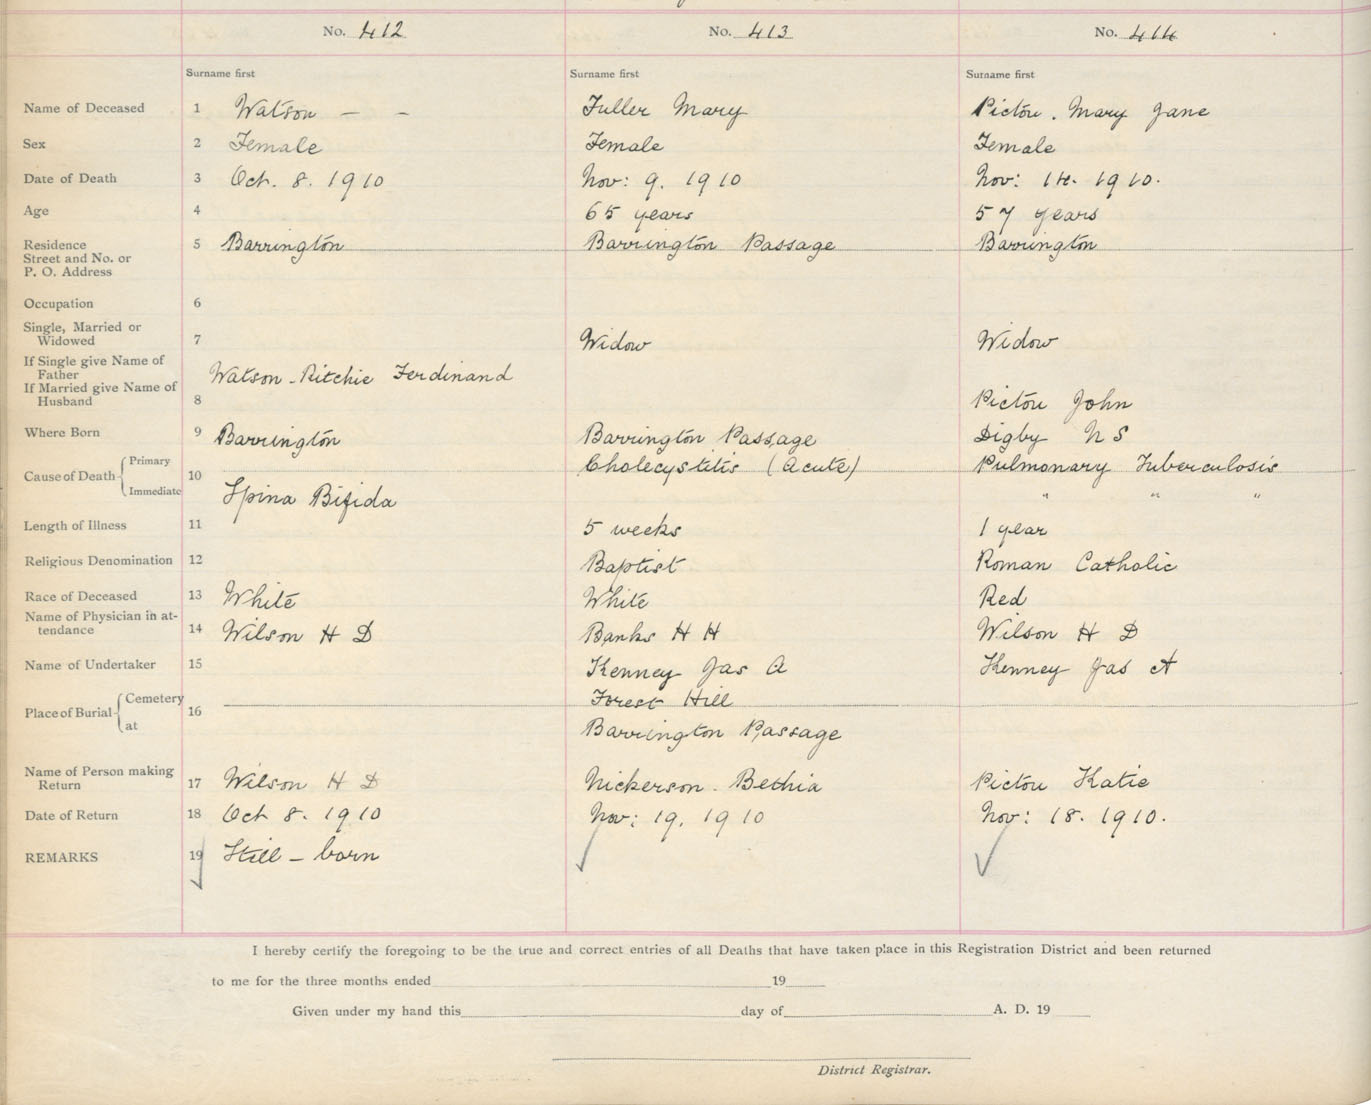 No. 412 No. 413 No. 414
Surname first Surname first Surname first
Name of Deceased 1 Watson — – Fuller Mary Pictou . Mary Jane
Sex 2 Female Female Female
Date of Death 3 Oct. 8. 1910 Nov: 9. 1910 Nov: 14. 1910.
Age 4 65 years 57 years
Residence 5 Barrington Barrington Passage Barrington
Street and No. or
P. O. Address
Occupation 6
Single, Married or
Widowed 7 Widow Widow
If Single give Name of
Father Watson . Ritchie Ferdinand
If Married give Name of
Husband 8 Pictou John
Where Born 9 Barrington Barrington Passage Digby N S
Cause of Death Primary 10 Cholecystitis (Acute) Pulmonary Tuberculosis
Immediate Spina Bifida " " "
Length of Illness 11 5 weeks 1 year
Religious Denomination 12 Baptist Roman Catholic
Race of Deceased 13 White White Red
Name of Physician in at-
tendance 14 Wilson H D Banks H H Wilson H D
Name of Undertaker 15 Kenney Jas A Kenney Jas A
Place of Burial Cemetery 16 Forest Hill
at Barrington Passage
Name of Person making
Return 17 Wilson H D Nickerson . Bethia Pictou Katie
Date of Return 18 Oct 8. 1910 Nov: 19. 1910 Nov: 18. 1910.
REMARKS 19 Still – born
I hereby certify the foregoing to be the true and correct entries of all Deaths that have taken place in this Registration District and been returned
to me for the three months ended 19
Given under my hand this day of A. D. 19
District Registrar.